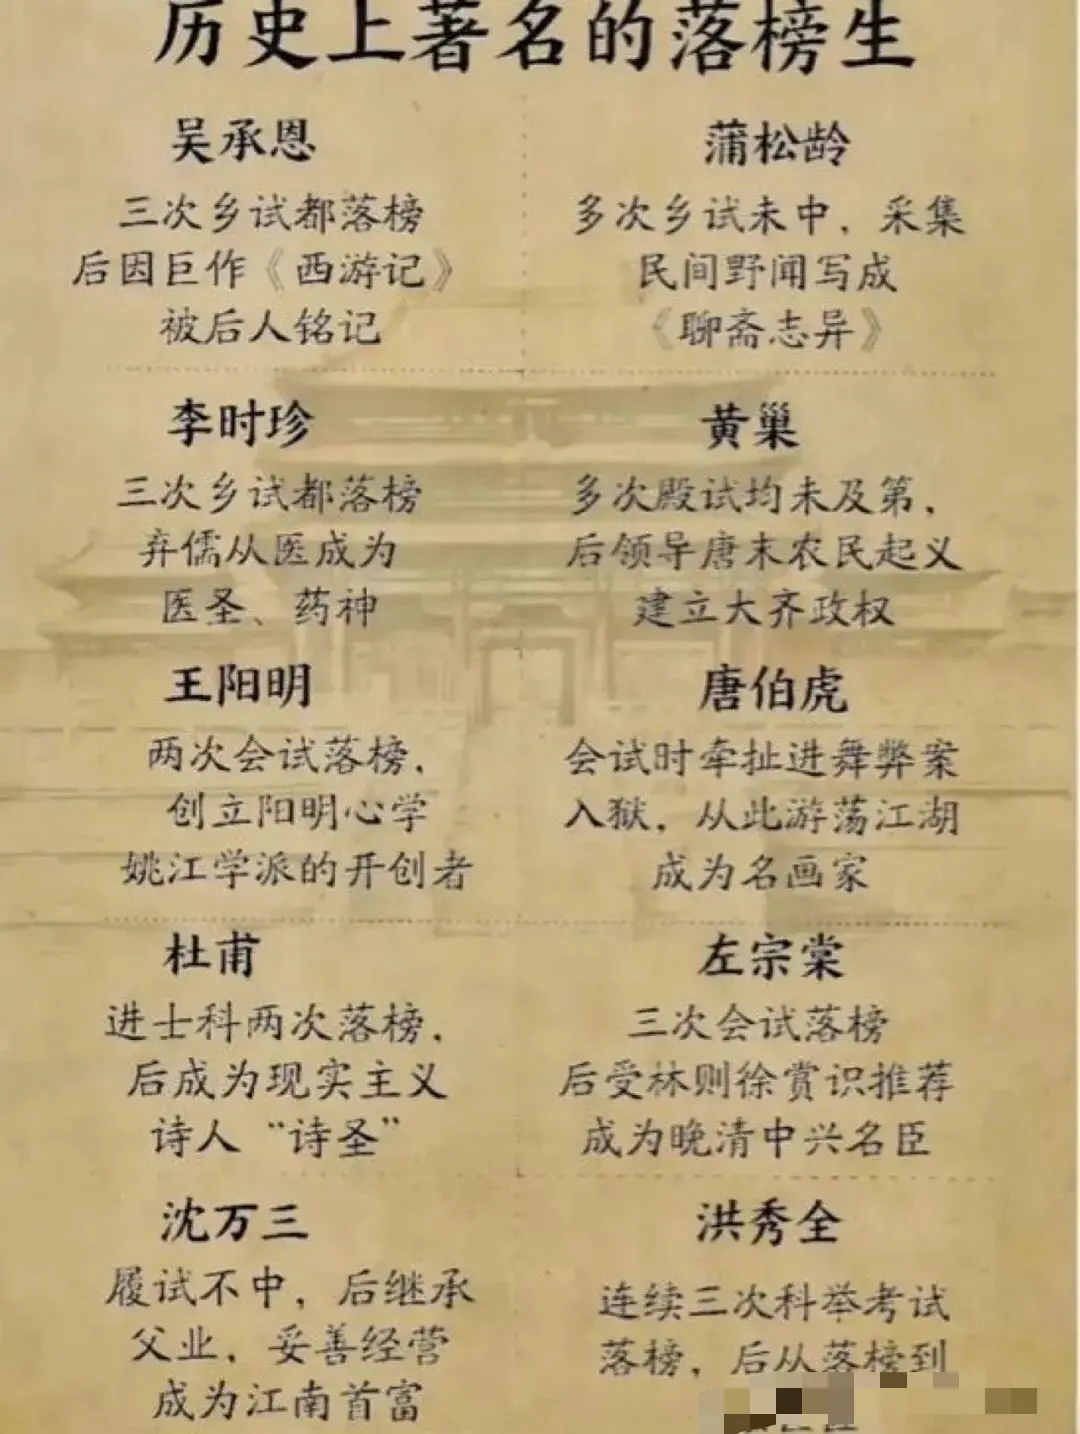 历史上著名的落榜生
吴承恩
三次乡试都落榜
后因巨作《西游记》
被后人铭记
蒲松龄
多次乡试未中，采集
民间野闻写成
《聊斋志异》
李时珍
三次乡试都落榜
弃儒从医成为
医圣、药神
黄巢
多次殿试均未及第，
后领导唐末农民起义
建立大齐政权
王阳明
两次会试落榜，
创立阳明心学
姚江学派的开创者
唐伯虎
会试时牵扯进舞弊案
入狱，从此游荡江湖
成为名画家
杜甫
进士科两次落榜，
后成为现实主义
诗人“诗圣”
左宗棠
三次会试落榜
后受林则徐赏识推荐
成为晚清中兴名臣
沈万三
履试不中，后继承
父业，妥善经营
成为江南首富
洪秀全
连续三次科举考试
落榜，后从落榜到